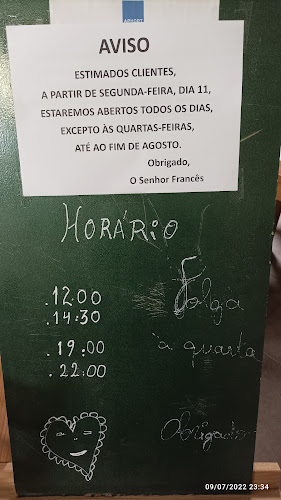 AVISO
ESTIMADOS CLIENTES,
A PARTIR DE SEGUNDA-FEIRA, DIA 11,
ESTAREMOS ABERTOS TODOS OS DIAS,
EXCEPTO ÀS QUARTAS-FEIRAS,
ATÉ AO FIM DE AGOSTO.
Obrigado,
O Senhor Francês
HORÁRIO
.12.00
.14:30
.19:00
.22:00
Folga
à quarta
Obrigado
09/07/2022 23:34